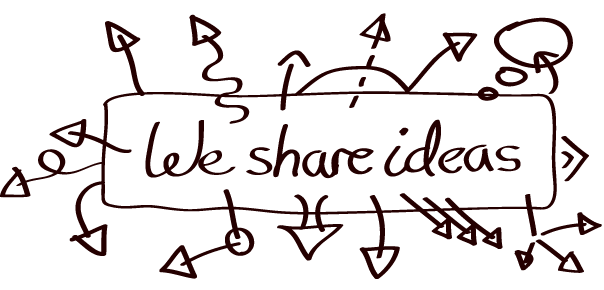 We share ideas